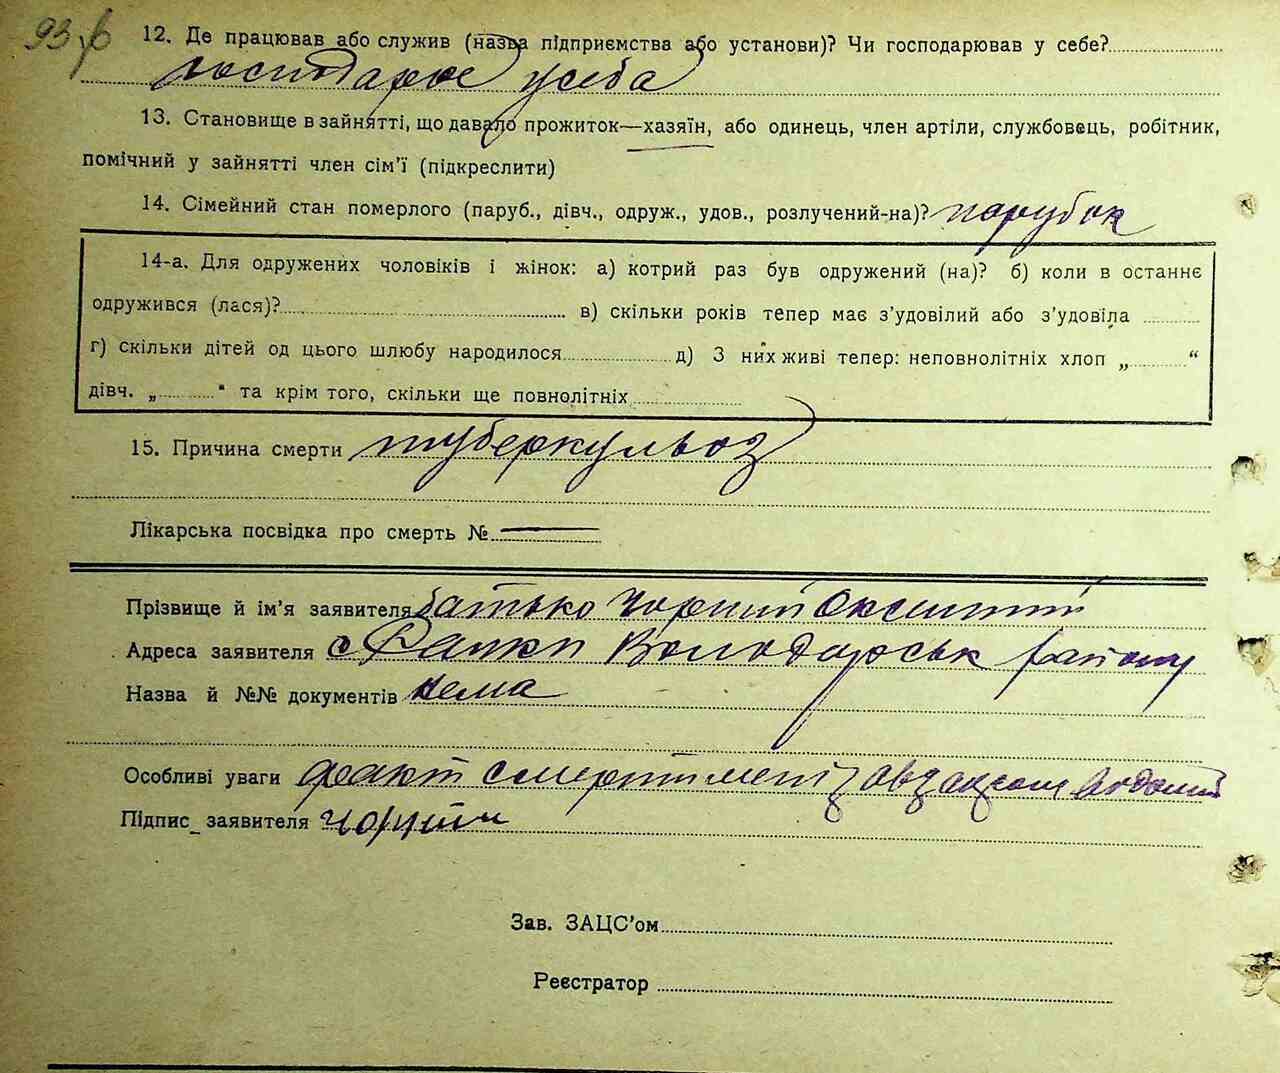 12. Де працював або служив (назва підприємства або установи)? Чи господарював у себе?
господарює у себе
13. Становище в зайнятті, що давало прожиток—хазяїн, або одинець, член артіли, службовець, робітник,
помічний у зайнятті член сім'ї (підкреслити)
14. Сімейний стан померлого (паруб., дівч., одруж., удов., розлучений-на)? парубок
14-а. Для одружених чоловіків і жінок: а) котрий раз був одружений (на)? б) коли в останнє
одружився (лася)? в) скільки років тепер має з'удовілий або з'удовіла
г) скільки дітей од цього шлюбу народилося д) З них живі тепер: неповнолітніх хлоп „ “
дівч. „ “ та крім того, скільки ще повнолітніх
15. Причина смерти туберкульоз
Лікарська посвідка про смерть №
Прізвище й ім'я заявителя батько Чорний
Адреса заявителя с Володарськ району
Назва й №№ документів нема
Особливі уваги факт смерти мені
Підпис заявителя Чорний
Зав. ЗАЦС'ом
Реєстратор